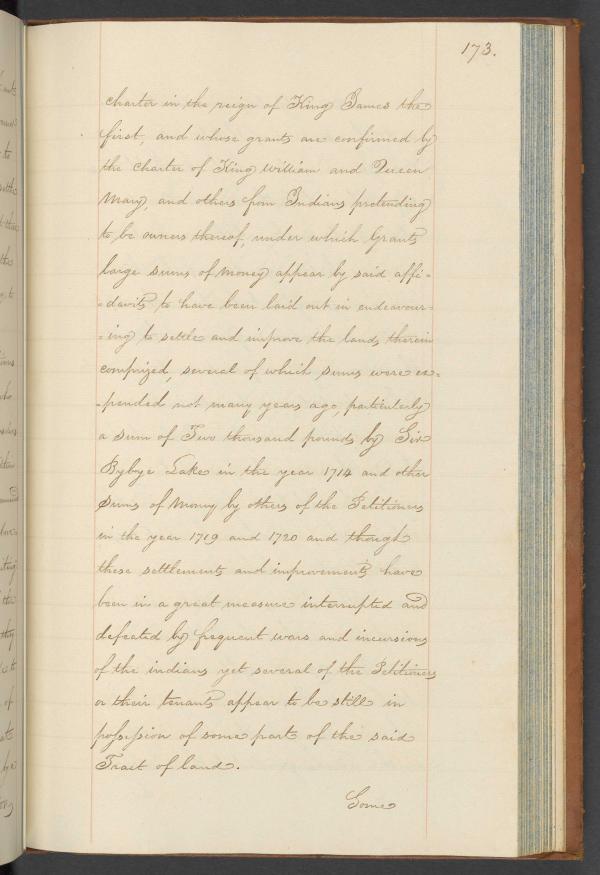 173.
charter in the reign of King James the
first, and whose grants are confirmed by
the charter of King William and Queen
Mary, and others from Indians pretending
to be owners thereof, under which Grants
large sums of money appear by said affi-
-davits to have been laid out in endeavour-
-ing to settle and improve the lands therein
comprized, several of which sums were ex-
-pended not many years ago, particularly
a sum of Two thousand pounds by Sir
Bybye Lake in the year 1714 and other
Sums of Money by others of the Petitioners
in the year 1719 and 1720 and though
these settlements and improvements have
been in a great measure interrupted and
defeated by frequent wars and incursions
of the indians yet several of the Petitioners
or their tenants appear to be still in
possession of some part of the said
Tract of land.
Some